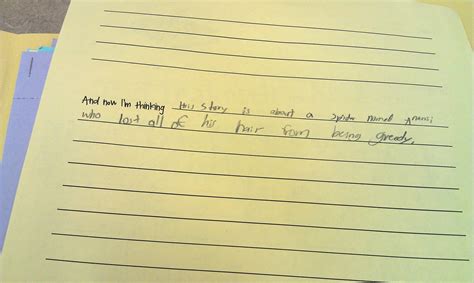 And now I'm thinking this story is about a spider named Anansi
who lost all of his hair from being greedy.